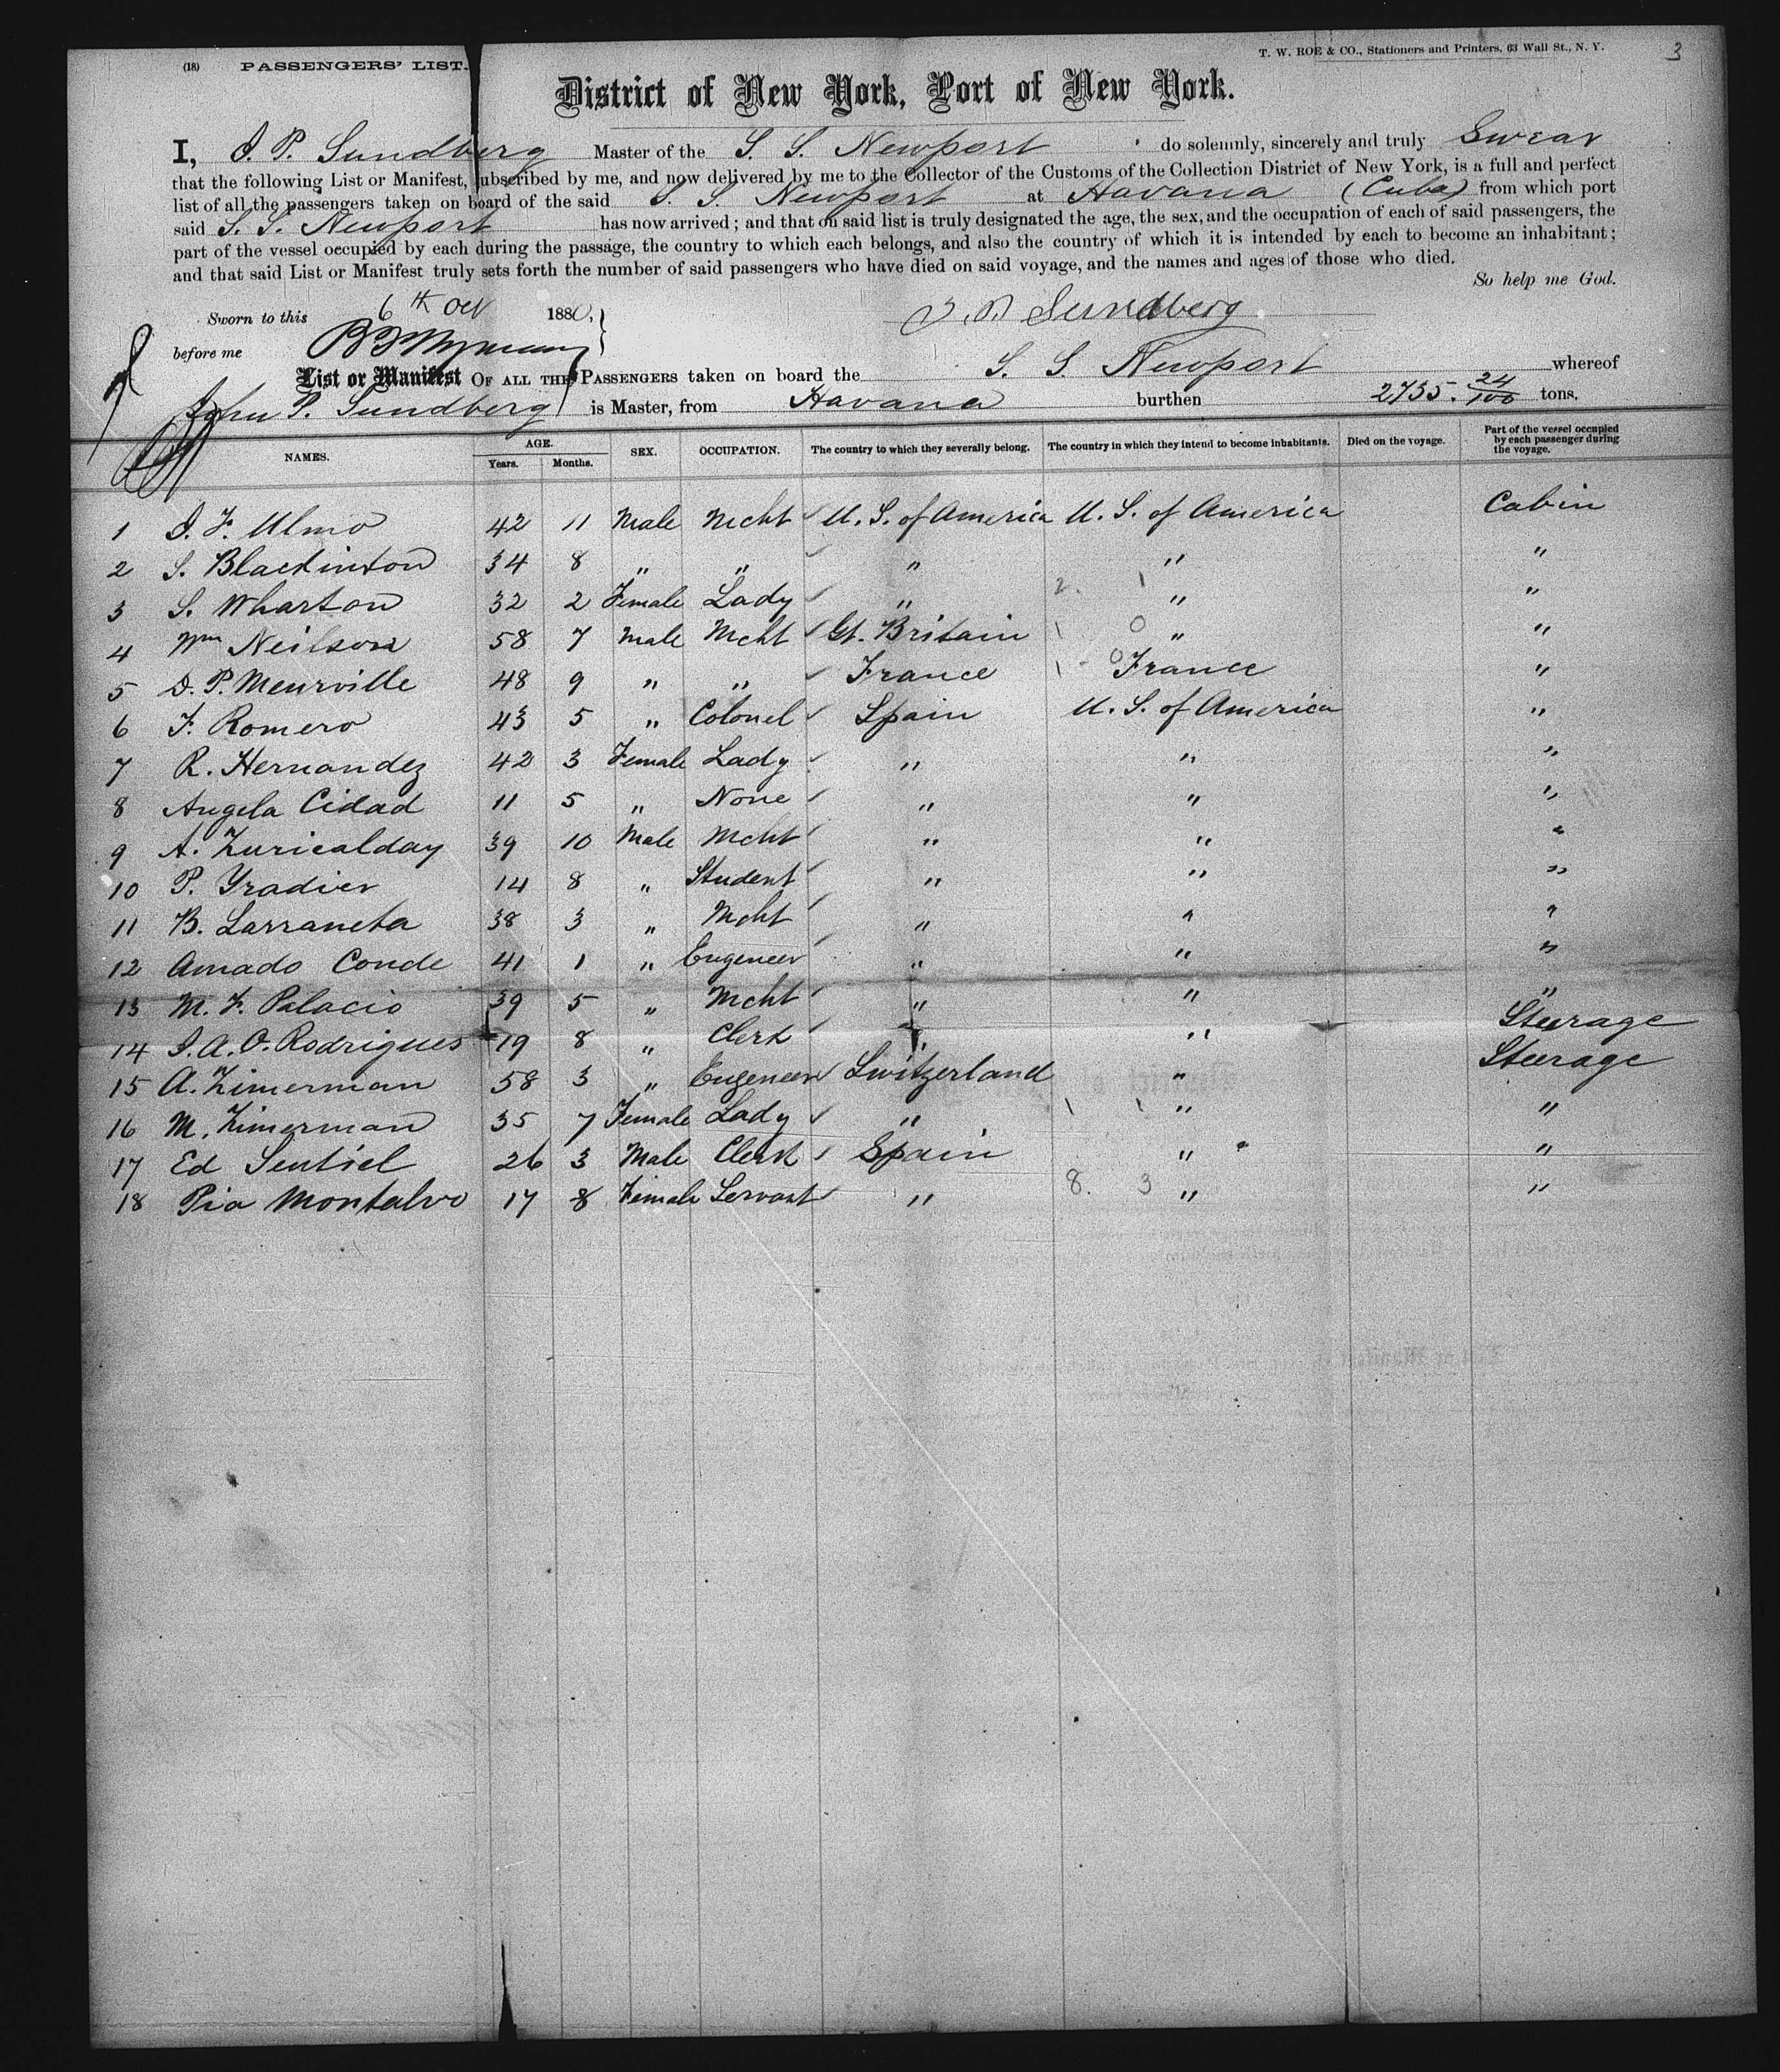 (18) PASSENGERS' LIST.
T. W. ROE & CO., Stationers and Printers, 63 Wall St., N. Y.
3
District of New York, Port of New York.
I, J. P. Sundberg Master of the S. S. Newport do solemnly, sincerely and truly Swear
that the following List or Manifest, subscribed by me, and now delivered by me to the Collector of the Customs of the Collection District of New York, is a full and perfect
list of all the passengers taken on board of the said S. S. Newport at Havana (Cuba) from which port
said S. S. Newport has now arrived; and that on said list is truly designated the age, the sex, and the occupation of each of said passengers, the
part of the vessel occupied by each during the passage, the country to which each belongs, and also the country of which it is intended by each to become an inhabitant;
and that said List or Manifest truly sets forth the number of said passengers who have died on said voyage, and the names and ages of those who died.
So help me God.
Sworn to this 6th Oct 1880,
J. P. Sundberg
before me
List or Manifest OF ALL THE PASSENGERS taken on board the S. S. Newport whereof
John P. Sundberg is Master, from Havana burthen 2735. 24/100 tons.
NAMES. AGE. Years. Months. SEX. OCCUPATION. The country to which they severally belong. The country in which they intend to become inhabitants. Died on the voyage. Part of the vessel occupied by each passenger during the voyage.
1 J. F. Ulmo 42 11 Male Mcht U. S. of America U. S. of America Cabin
2 S. Blackinton 34 8 " " " " "
3 S. Wharton 32 2 Female Lady " 2. 1 " "
4 Wm Neilson 58 7 Male Mcht Gt. Britain 1 0 " "
5 D. P. Meurville 48 9 " " France 1 - 0 France "
6 F. Romero 43 5 " Colonel Spain U. S. of America "
7 R. Hernandez 42 3 Female Lady " " "
8 Angela Cidad 11 5 " None " " "
9 A. Zuricalday 39 10 Male Mcht " " "
10 P. Yradier 14 8 " Student " " "
11 B. Larraneta 38 3 " Mcht " " "
12 Amado Conde 41 1 " Engeneer " " "
13 M. F. Palacio 39 5 " Mcht " " "
14 J. A. O. Rodrigues 19 8 " Clerk " " Steerage
15 A. Zimerman 58 3 " Engeneer Switzerland " Steerage
16 M. Zimerman 35 7 Female Lady " 1 1 " "
17 Ed Sentiel 26 3 Male Clerk Spain " "
18 Pia Montalvo 17 8 Female Servant " 8. 3 " "